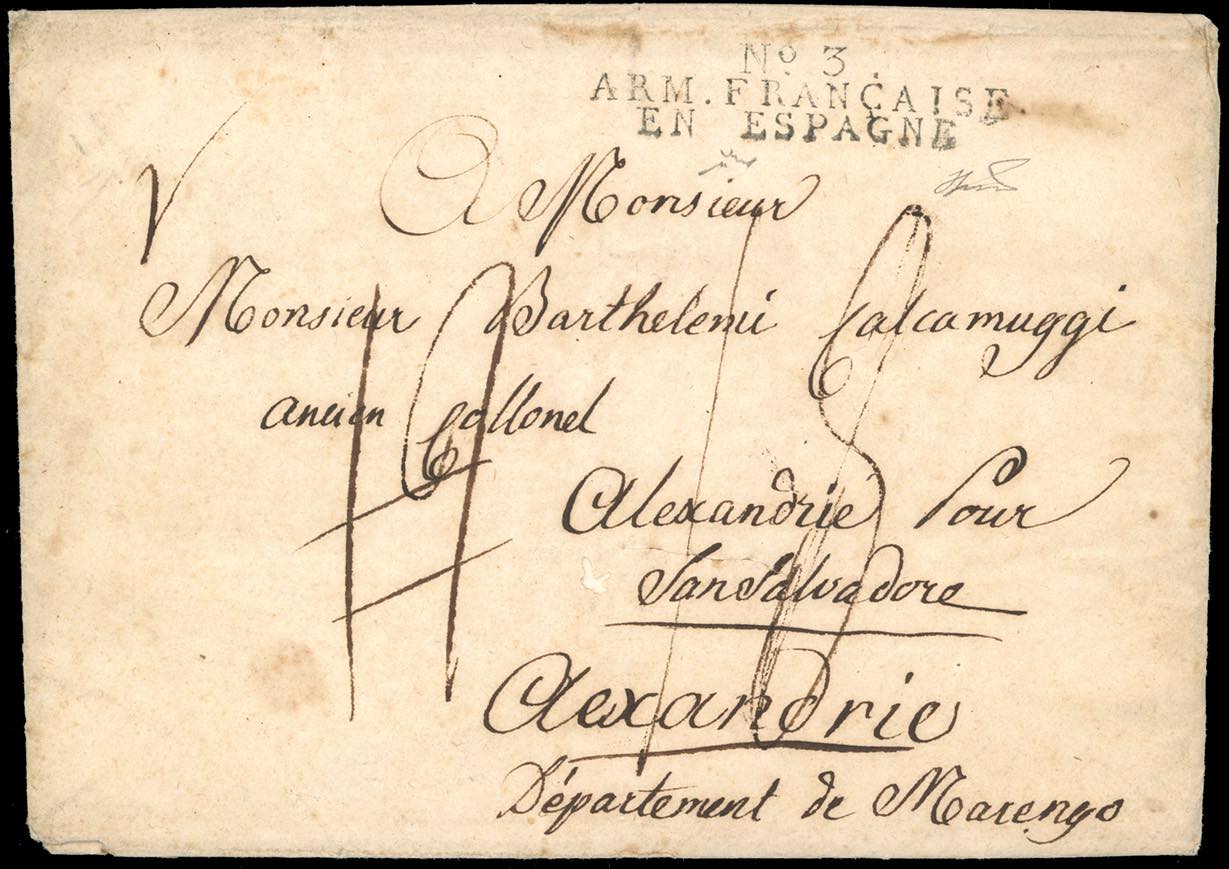 Nº 3.
ARM. FRANÇAISE
EN ESPAGNE
A Monsieur
Monsieur Barthelemi Calcamuggi
ancien Collonel
Alexandrie Pour
San Salvadore
Alexandrie
Département de Marengo